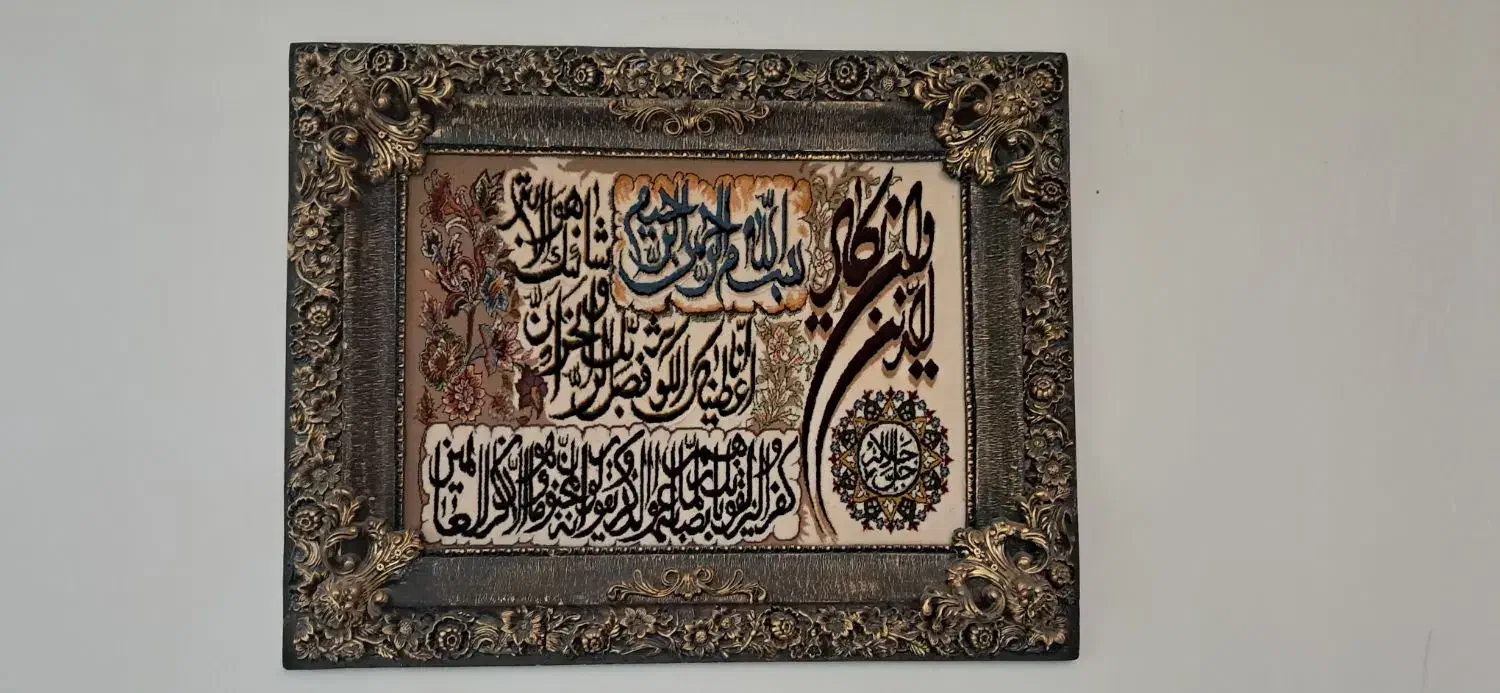 بسم الله الرحمن الرحیم
وان یکاد الذین
کفروا لیزلقونک بابصارهم لما سمعوا الذکر ویقولون انه لمجنون وما هو الا ذکر للعالمین
انّا اعطیناک الکوثر فصل لربّک وانحر انّ
شانئک هو الابتر
جل جلاله